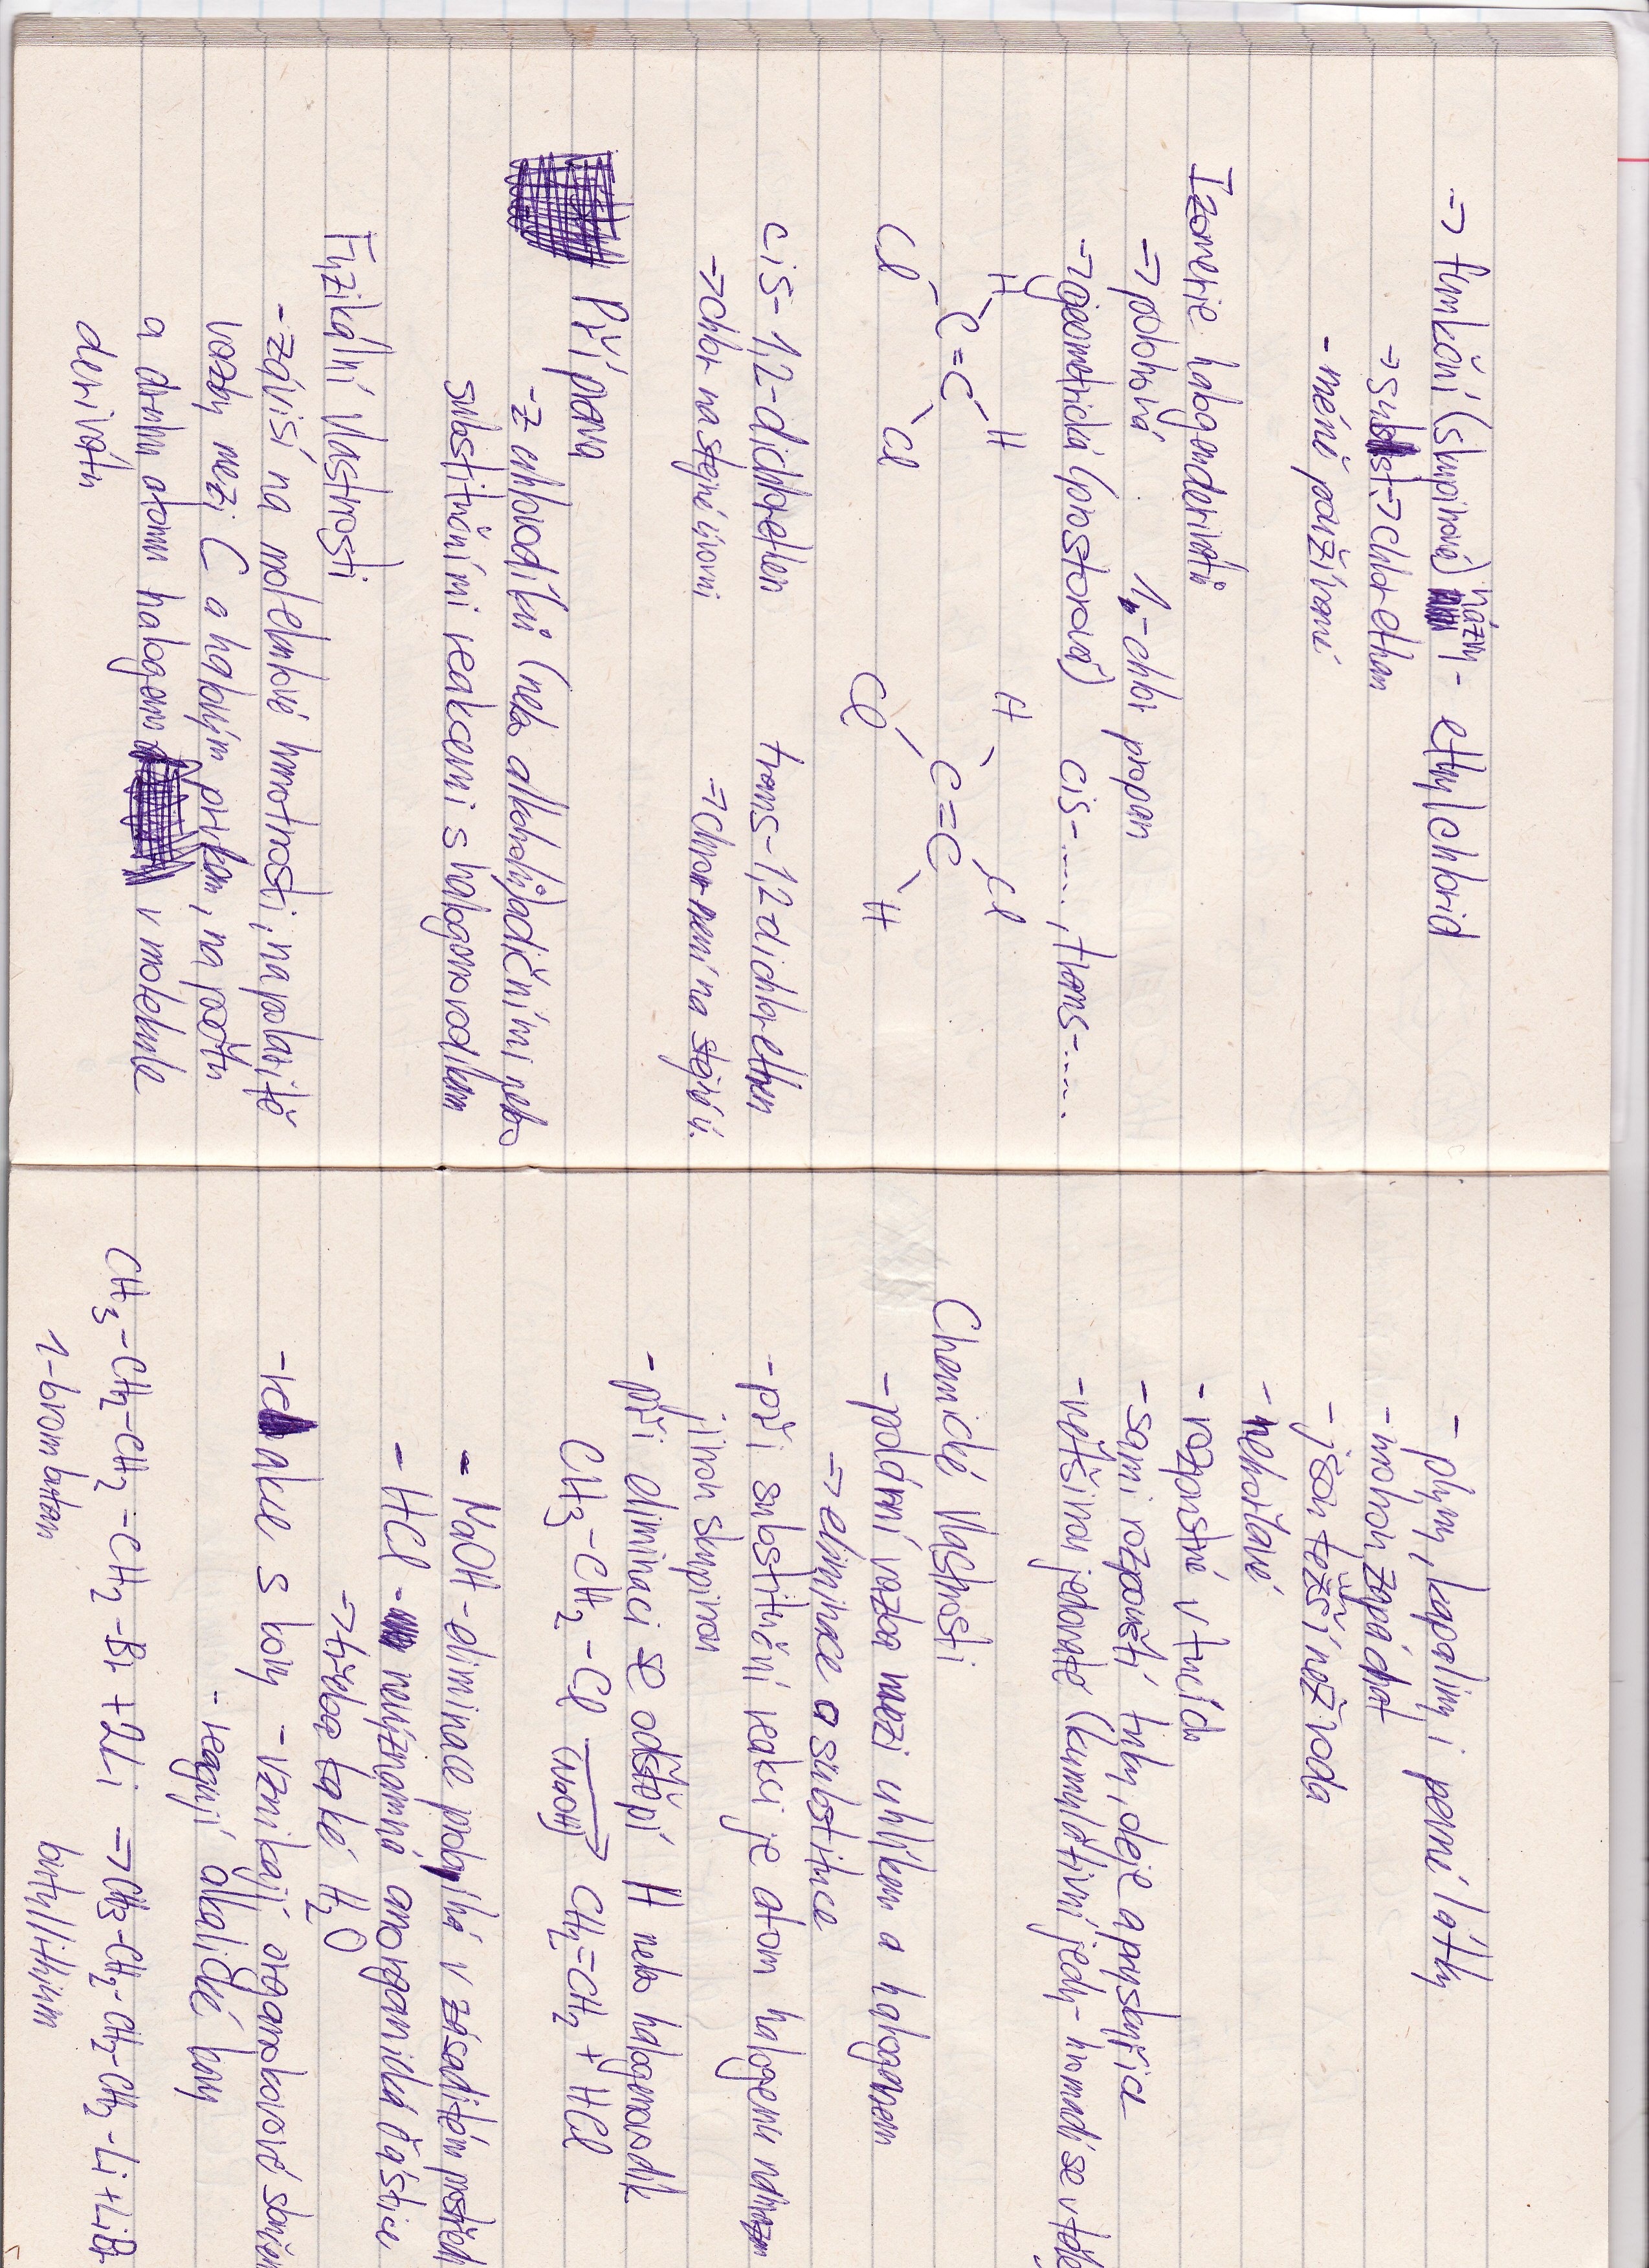 => funkční (skupinové) názvy - ethylchlorid
=> subst => chlorethan
- méně používané
Izomerie halogenderivátů
=> polohová 1-chlor propan
=> geometrická (prostorová) cis-...., trans-....
H H
C=C
Cl Cl
H Cl
C=C
Cl H
cis-1,2-dichlorethen
trans-1,2 dichlorethen
=> chlor na stejné úrovni
=> Chlor není na stejné ú.
Příprava
- z uhlovodíků (nebo alkoholů) adičními nebo
substitučními reakcemi s halogenovodíkem
Fyzikální vlastnosti
- závisí na molekulové hmotnosti, na polaritě
vazby mezi C a halovým prvkem, na počtu
a druhu atomu halogenu v molekule
derivátu
- plyny, kapaliny i pevné látky
- mohou zapáchat
- jsou těžší než voda
- nehořlavé
- rozpustné v tucích
- sami rozpouští tuky, oleje a pryskyřice
- většinou jedovaté (kumulativní jedy - hromadí se v těle
Chemické vlastnosti
- polární vazba mezi uhlíkem a halogenem
=> eliminace a substituce
- při substituční reakci je atom halogenu nahrazen
jinou skupinou
- při eliminaci se odštěpí H nebo halogenovodík
CH3-CH2-Cl (NaOH)→ CH2=CH2 + HCl
- NaOH - eliminace probíhá v zásaditém prostřed
- HCl - nevýznamná anorganická částice
=> třeba také H2O
- reakce s kovy - vznikají organokovové sloučen
- reagují alkalické kovy
CH3-CH2-CH2-CH2-Br + 2Li => CH3-CH2-CH2-CH2-Li + LiBr
1-brombutan butyllithium